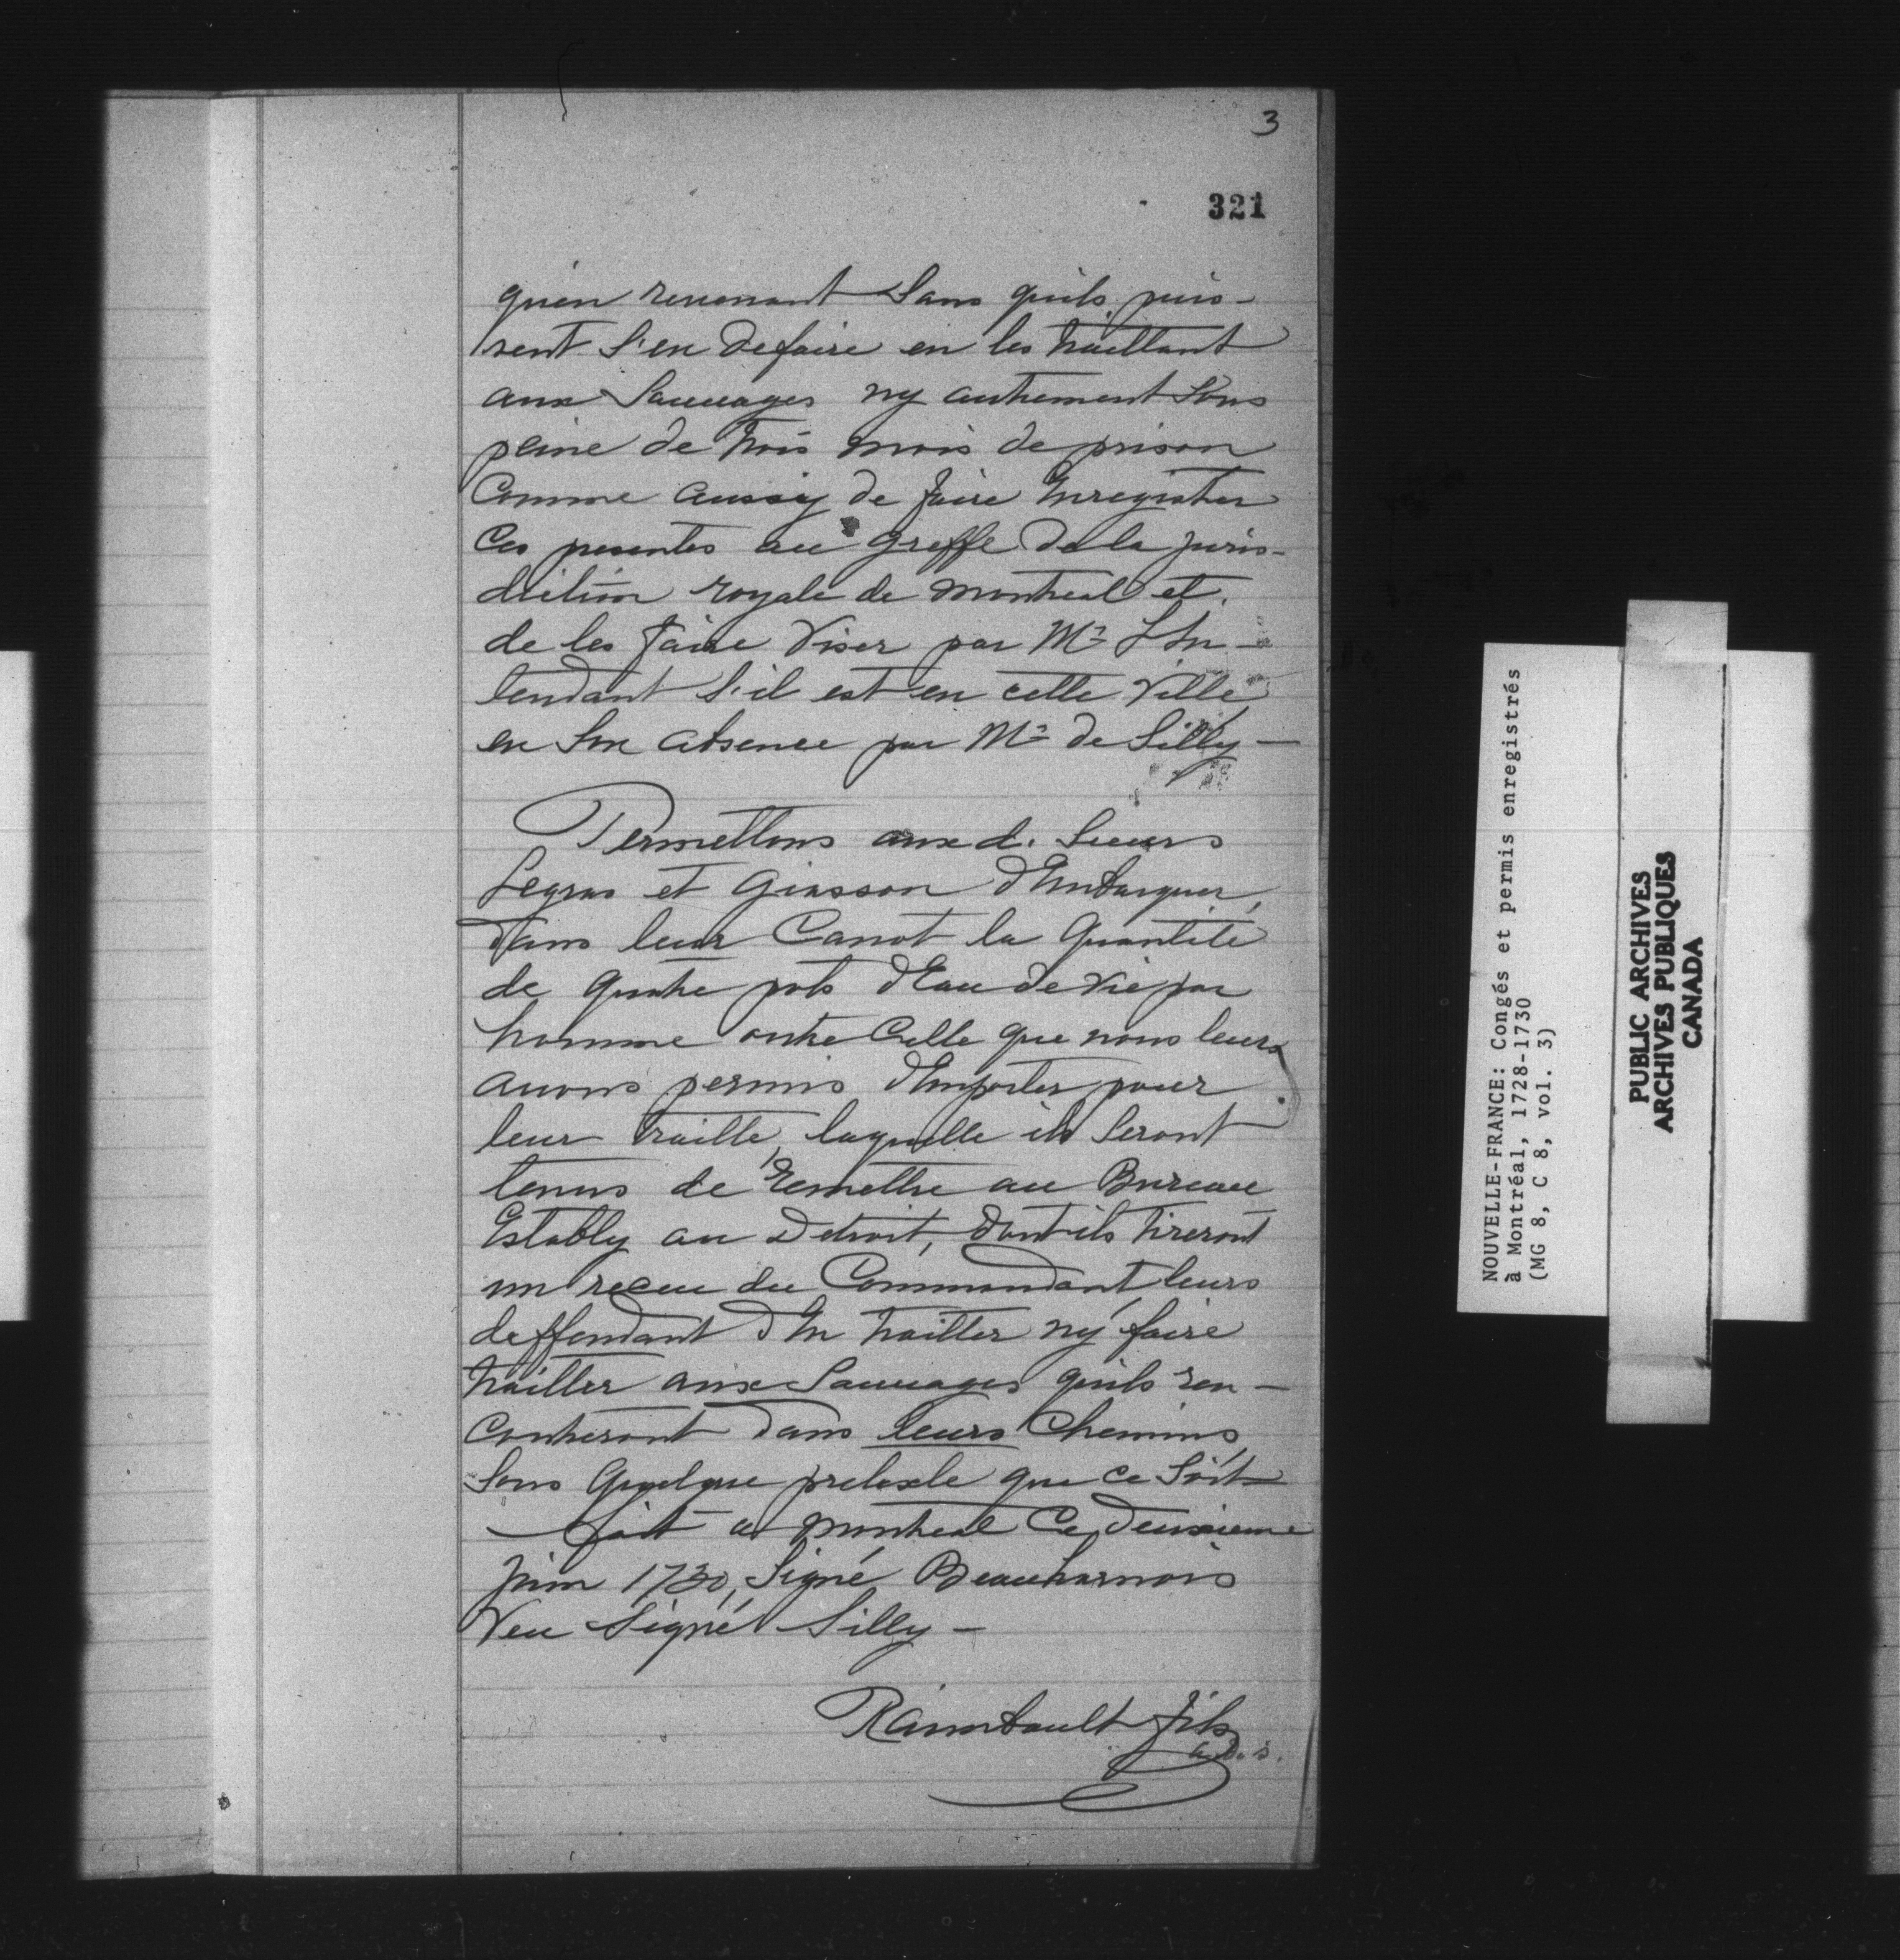 3
321
qu'en revenant Sans quils puis-
sent S'en defaire en les traittant
aux Sauuages ny autrement Sous
peine de trois mois de prison
Comme aussy de faire Enregistrer
Ces presentes au Greffe de la juris-
diction royale de montreal et
de les faire Viser par Mr L'In-
tendant S'il est en cette Ville
en Son absence par Mr de Silly -
Permettons aux d. Sieurs
Legras et Giasson d'Embarquer
dans leur Canot la Quantité
de Quatre pots d'Eau de Vie par
homme outre Celle que nous leurs
auons permis d'Emporter pour
leur traitte, laquelle ils Seront
tenus de Remettre au Bureau
Estably au Detroit, dont ils tireront
un receu du Commandant leurs
deffendant d'En traitter ny faire
traitter aux Sauuages quils ren-
contreront dans leurs Chemins
Sous Quelque pretexte que ce Soit
fait a montreal Ce deuxieme
juin 1730, Signé Beauharnois
Veu Signé Silly -
Raimbault fils
NOUVELLE-FRANCE: Congés et permis enregistrés
à Montréal, 1728-1730
(MG 8, C 8, vol. 3)
PUBLIC ARCHIVES
ARCHIVES PUBLIQUES
CANADA